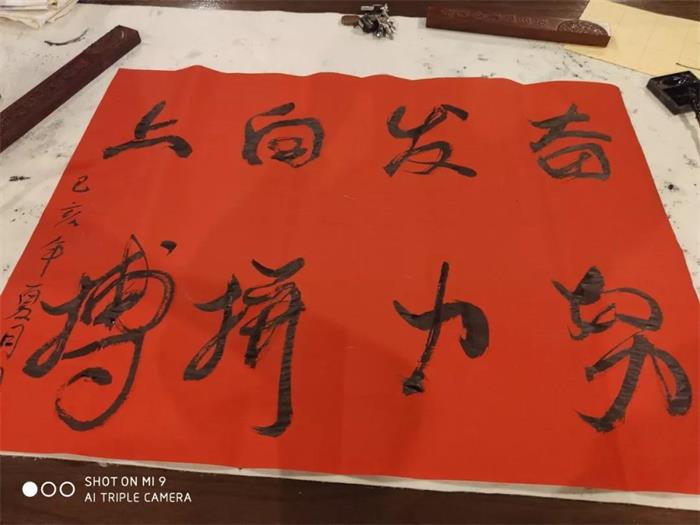 奋发向上
努力拼搏
己亥年夏
SHOT ON MI 9
AI TRIPLE CAMERA